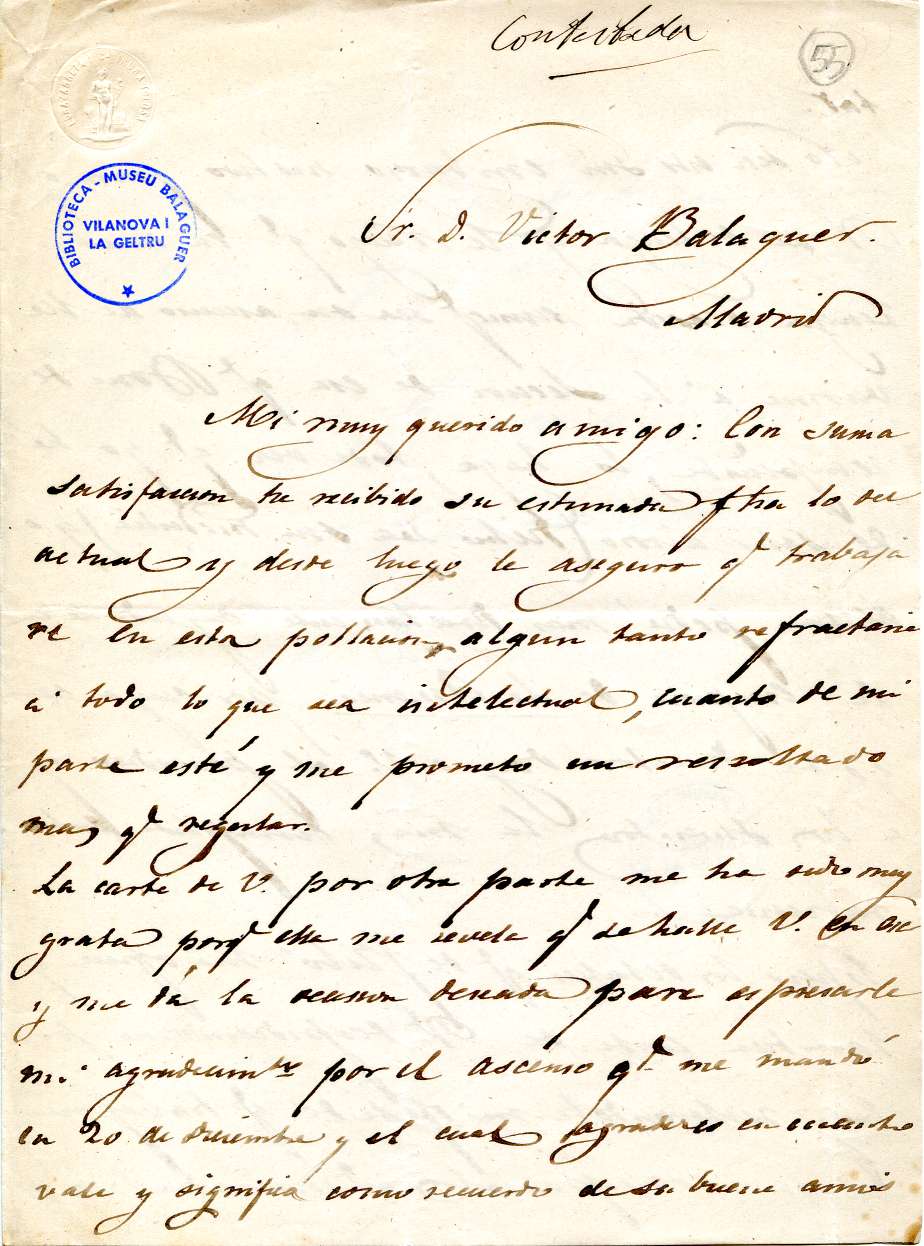 Contestada
55
BIBLIOTECA - MUSEU BALAGUER
VILANOVA I
LA GELTRU
Sr. D. Victor Balaguer.
Madrid
Mi muy querido amigo: Con suma
satisfaccion he recibido su estimada fha 10 del
actual y desde luego le aseguro qe trabaja
re en esta poblacion, algun tanto refractaria
á todo lo que sea intelectual, cuanto de mi
parte esté y me prometo un resultado
mas qe regular.
La carta de V. por otra parte me ha sido muy
grata porqe ella me revela qe se halla V. en esa
y me dá la ocasion deseada para espresarle
mi agradecimto por el ascenso qe me mandó
en 20 de diciembre y el cual agradezco en cuanto
vale y significa como recuerdo de su buena amis